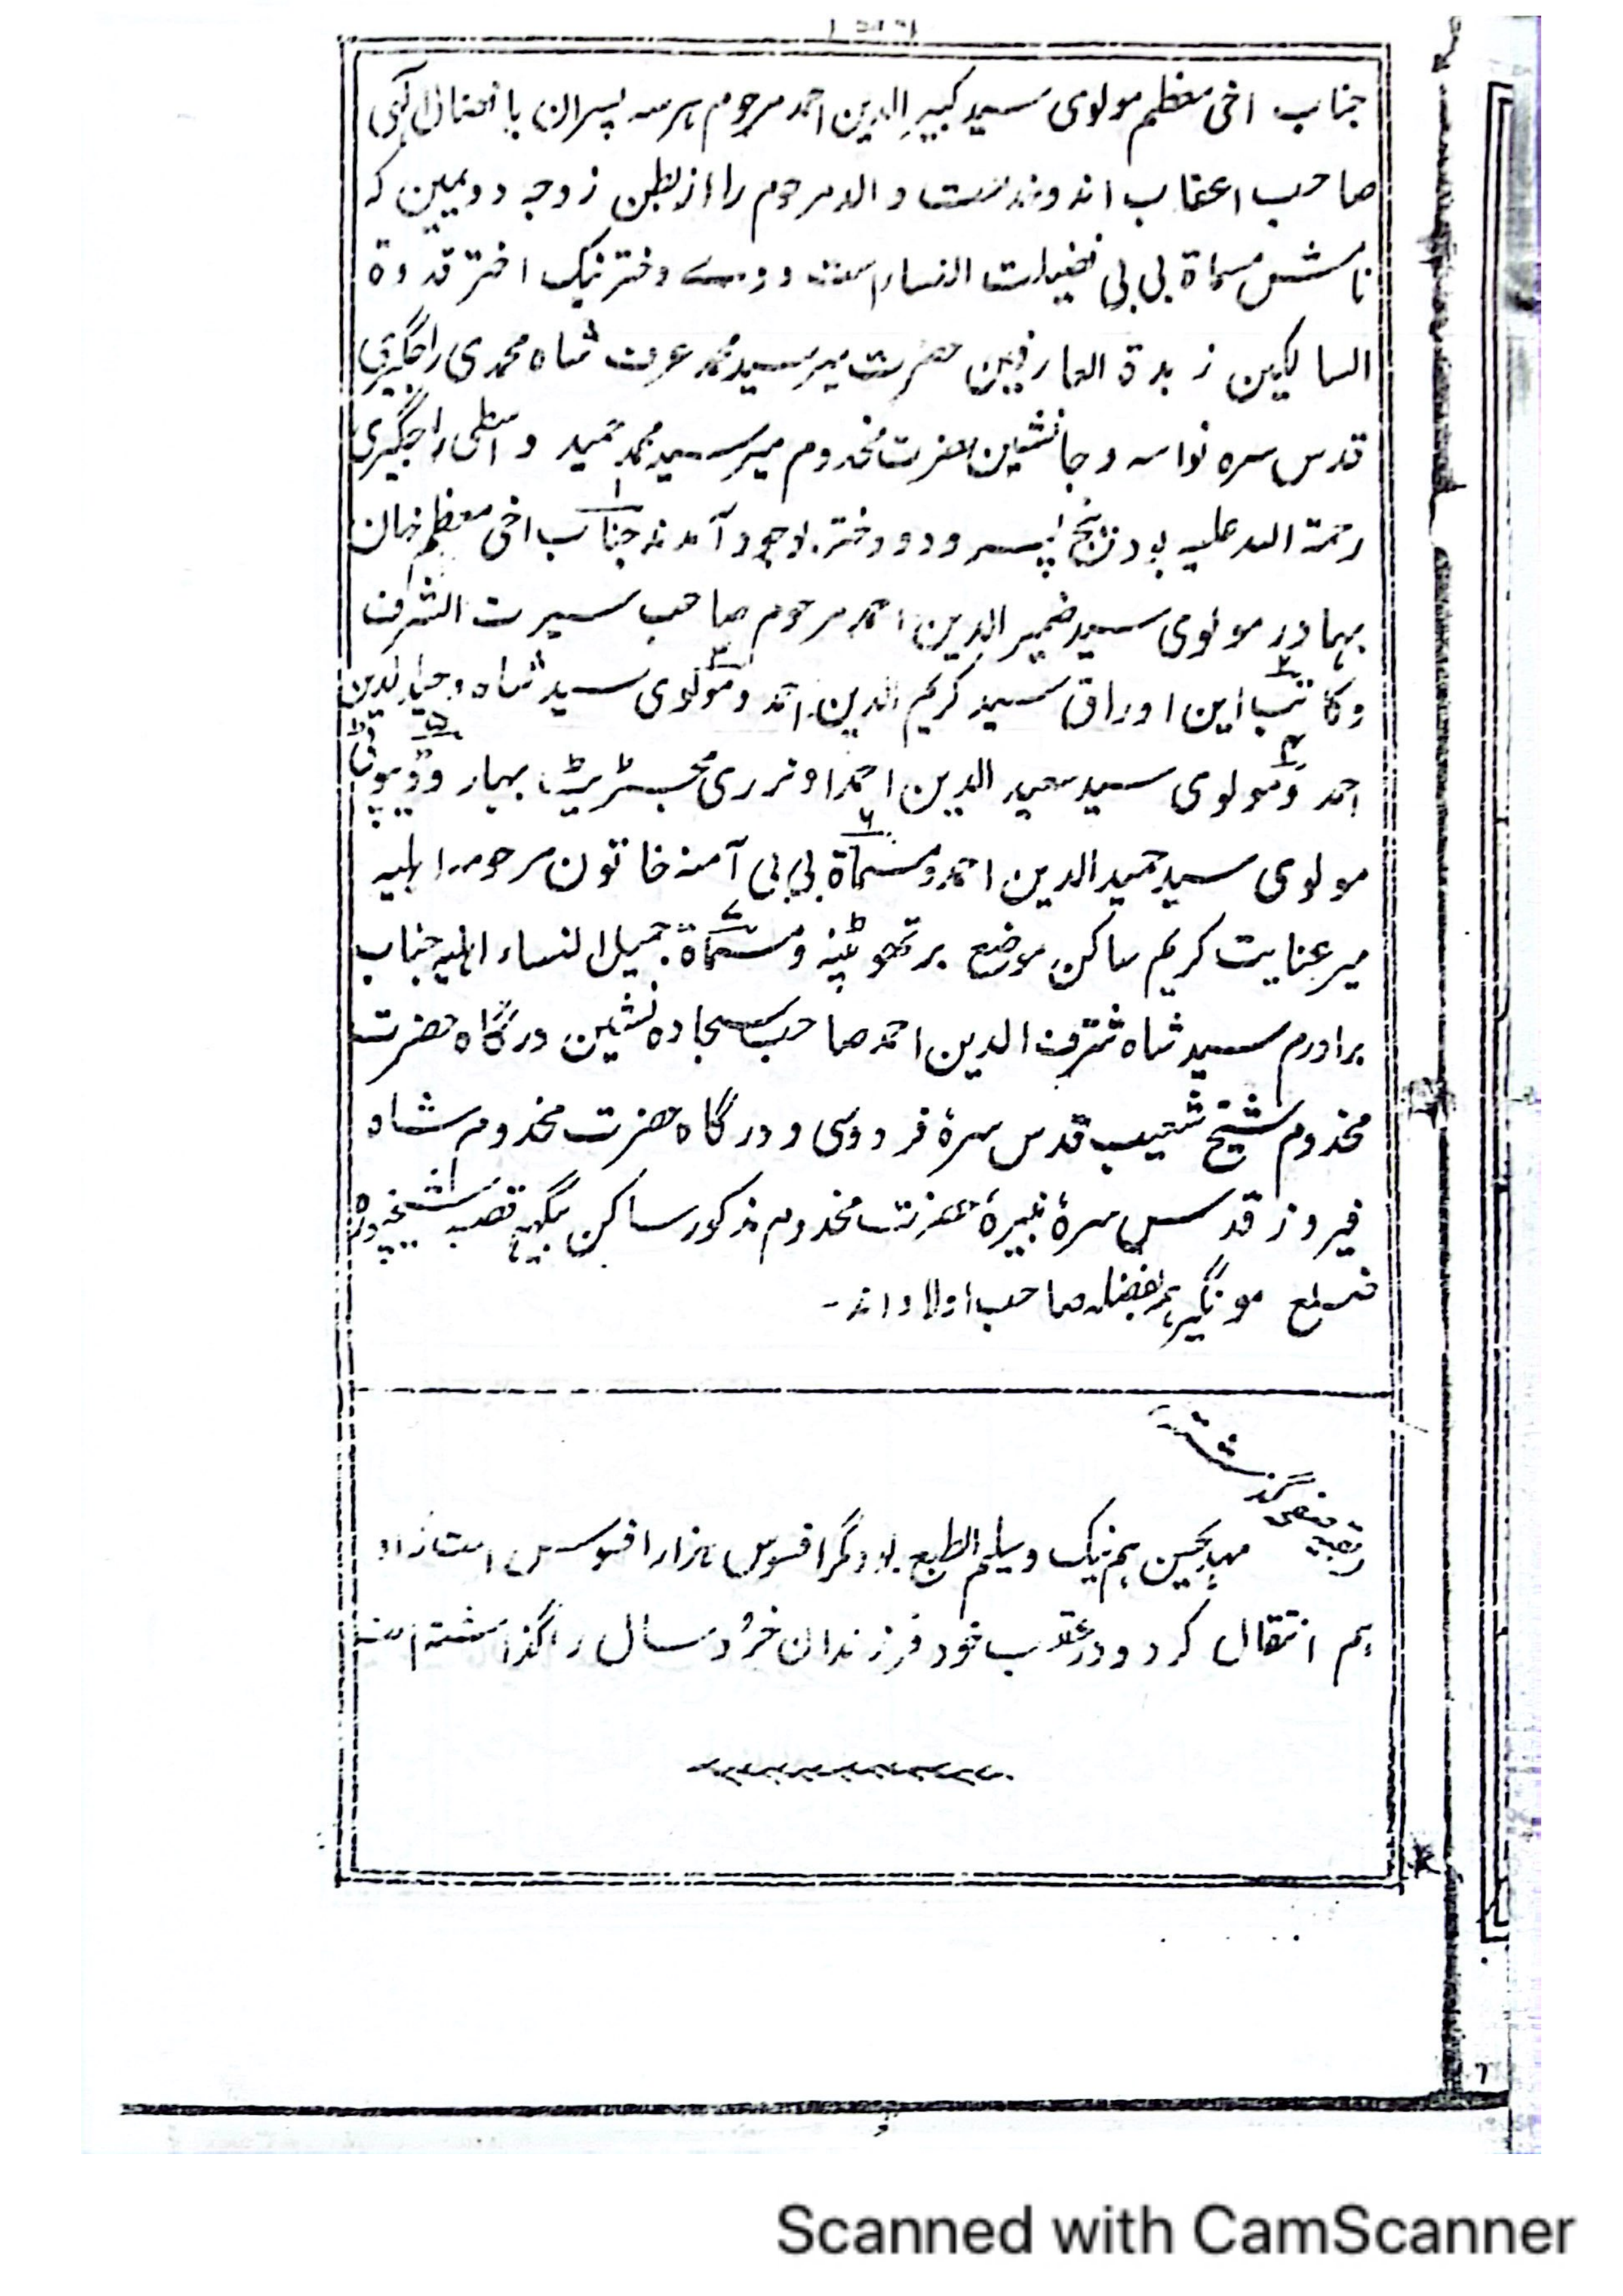 جناب اخی معظم مولوی سید کبیر الدین احمد مرحوم ہرسہ پسران با افضال الٰہی
صاحب اعقاب اند و والد مرحوم را از بطن زوجہ دویمین کہ
نامش مسماة بی بی فضیلت النساء است دختر نیک اختر قدوة
السالکین زبدة العارفین حضرت میر سید محمد عرف شاہ محمدی راجگیری
قدس سرہ نواسہ و جانشین حضرت مخدوم میر سید محمد حمید واسطی راجگیری
رحمة اللہ علیہ بود پنج پسر و دو دختر بوجود آمدند ۱ جناب اخی معظم خان
بہادر مولوی سید ضمیر الدین احمد مرحوم صاحب سیرت الشرف
۲ وکاتب این اوراق سید کریم الدین احمد ۳ و مولوی سید شاہ وحید الدین
احمد ۴ و مولوی سید سعید الدین احمد اونرری مجسٹریٹ بہار ۵
مولوی سید حمید الدین احمد ۶ و مسماة بی بی آمنہ خاتون مرحومہ اہلیہ
میر عنایت کریم ساکن موضع ۷ و مسماة جمیل النساء اہلیہ جناب
برادرم سید شاہ شرف الدین احمد صاحب سجادہ نشین درگاہ حضرت
مخدوم شیخ شعیب قدس سرہٗ فردوسی و درگاہ حضرت مخدوم شاہ
فیروز قدس سرہٗ نبیرۂ حضرت مخدوم مذکور ساکن قصبہ شیخپورہ
ضلع مونگیر ہمہ بفضلہ صاحب اولاد اند -
بقیہ صفحہ گذشتہ
ہم نیک و سلیم الطبع بود مگر افسوس ہزار افسوس است
ہم انتقال کرد و در عقب خود فرزندان خُرد سال را گذاشتہ است
Scanned with CamScanner